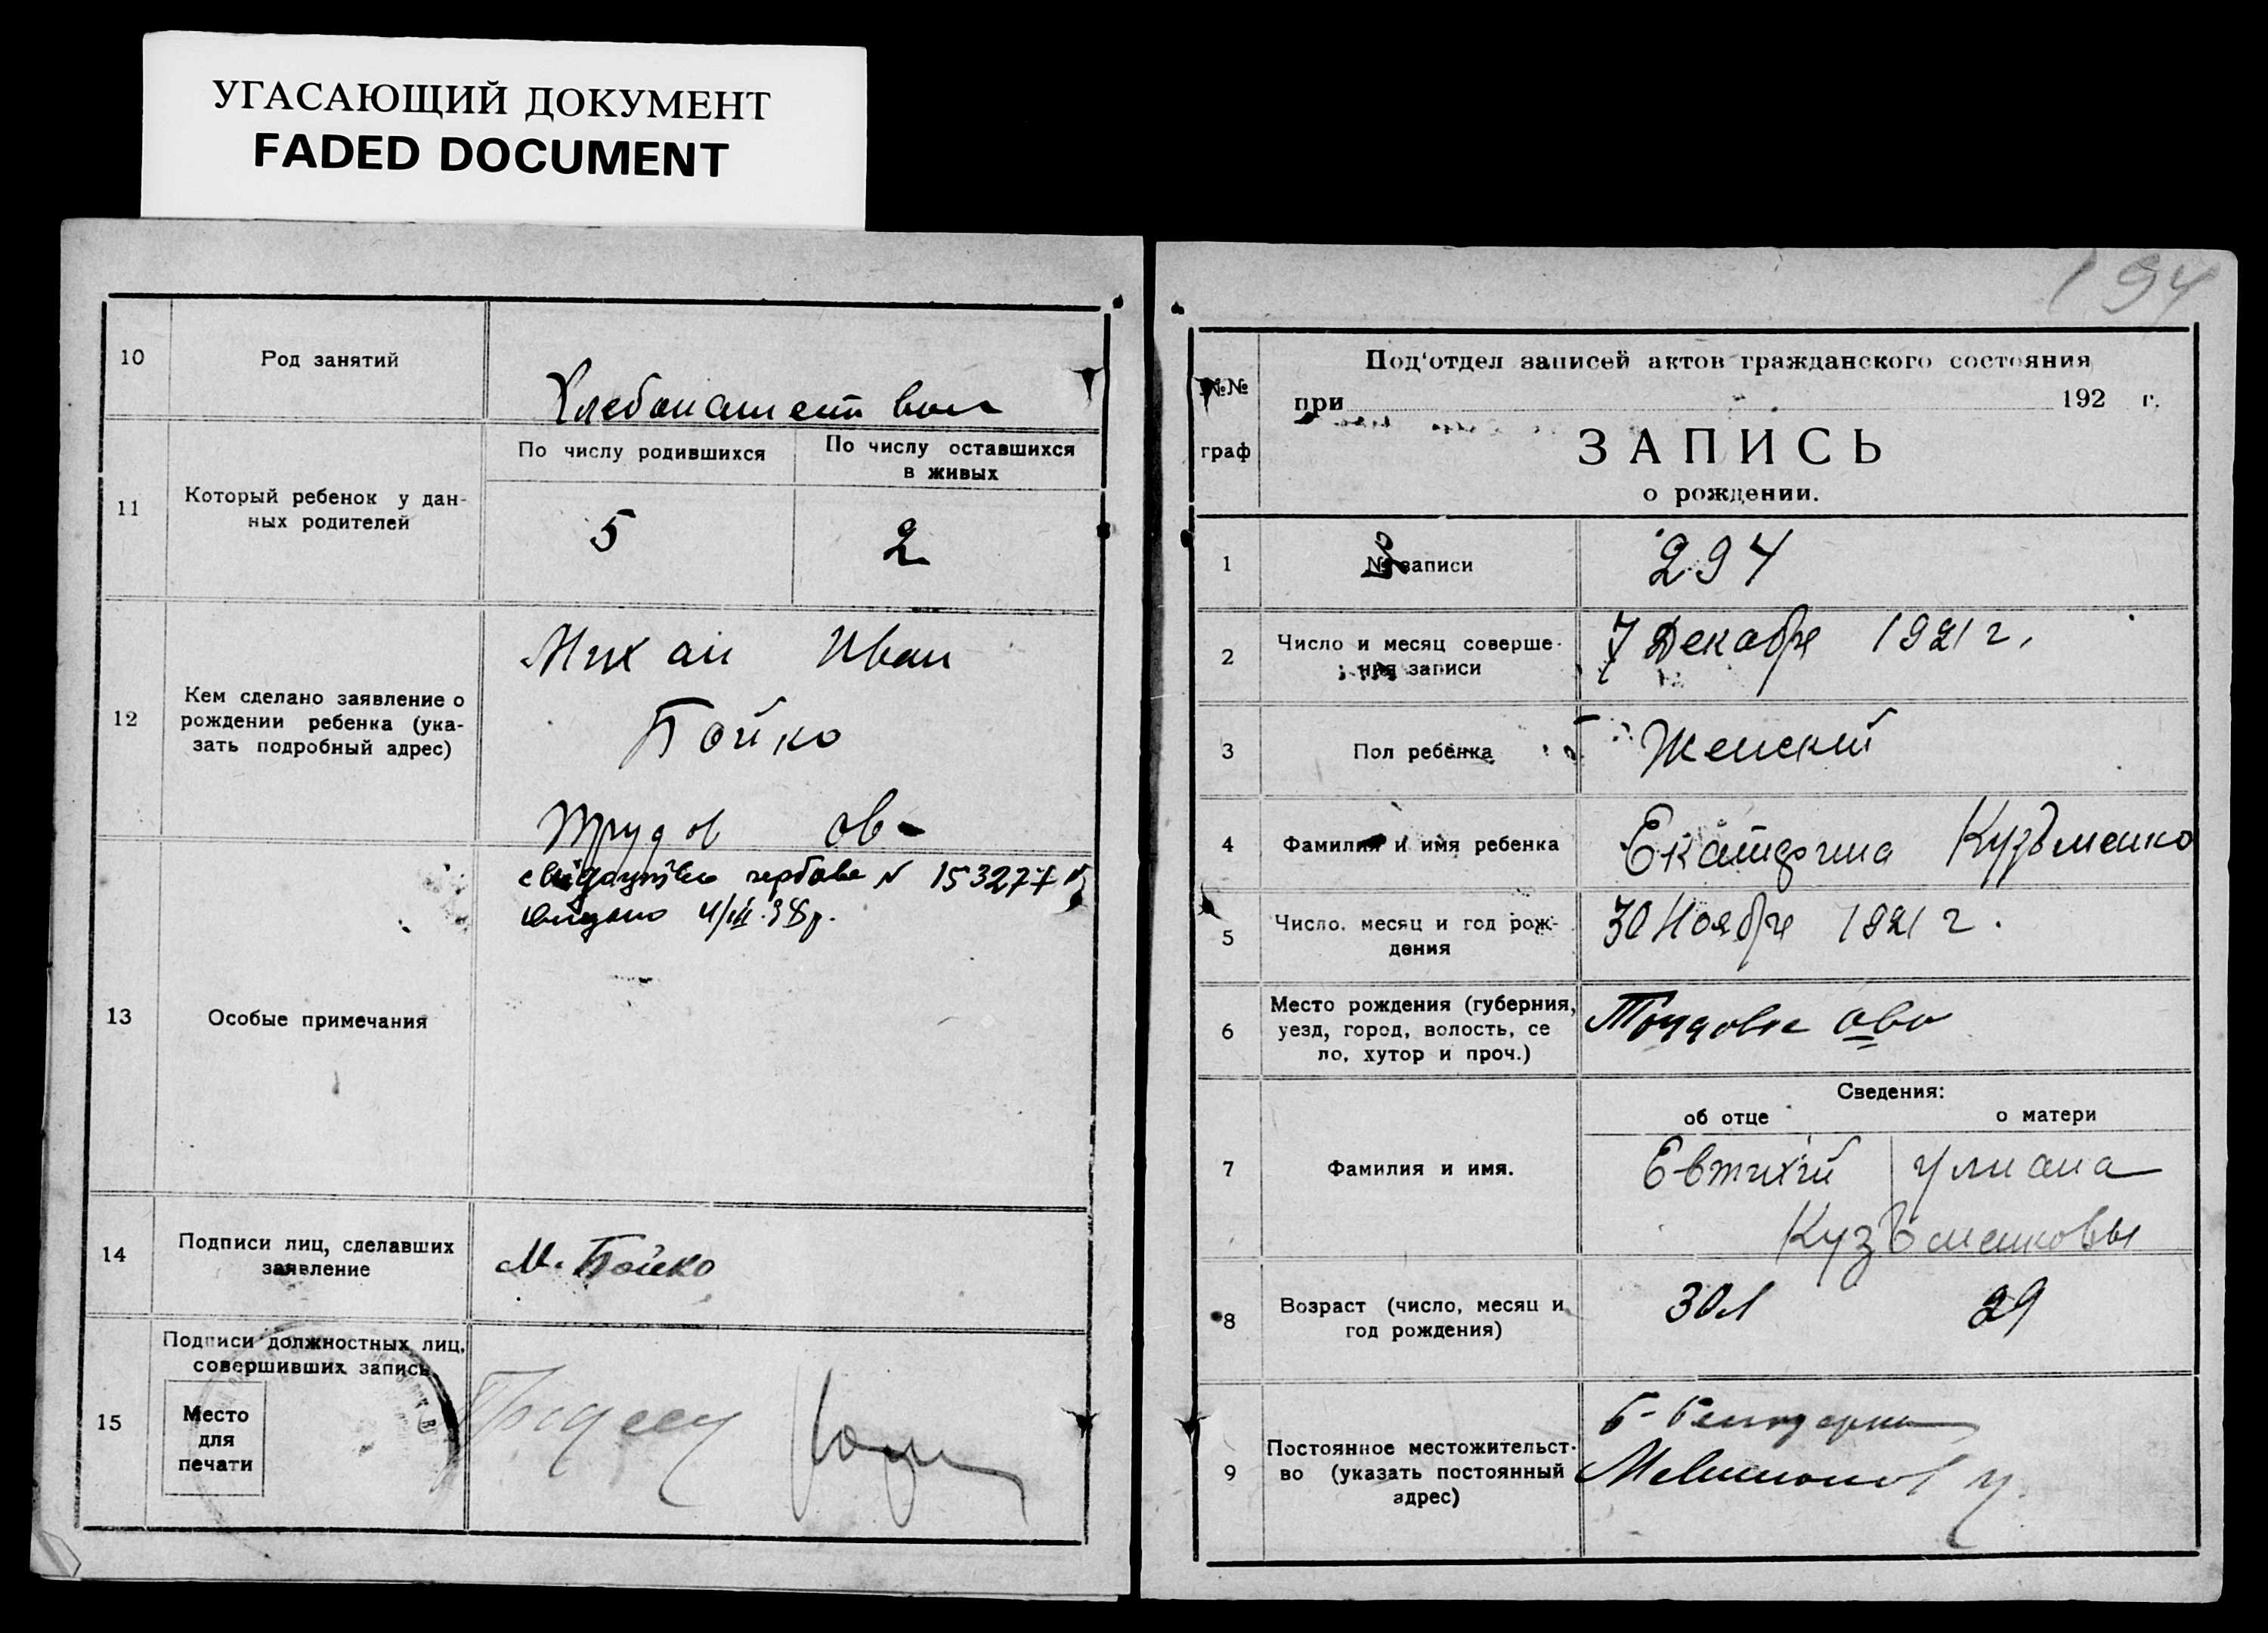 УГАСАЮЩИЙ ДОКУМЕНТ
FADED DOCUMENT
10
Род занятий
Хлебопашеством
11
Который ребенок у дан-
ных родителей
По числу родившихся
По числу оставшихся
в живых
5
2
12
Кем сделано заявление о
рождении ребенка (ука-
зать подробный адрес)
Михаи Иван
Бойко
Трудов ов
13
Особые примечания
свідоцтво N 153277
видано 4/III.38р.
14
Подписи лиц, сделавших
заявление
М. Бойко
15
Подписи должностных лиц,
совершивших запись
Место
для
печати
194
№№
граф
Под'отдел записей актов гражданского состояния
при 192 г.
ЗАПИСЬ
о рождении.
1
№ записи
294
2
Число и месяц соверше-
ния записи
7 Декабре 1921 г.
3
Пол ребенка
Женский
4
Фамилия и имя ребенка
Екатерина Кузьменко
5
Число, месяц и год рож-
дения
30 Ноябре 1921 г.
6
Место рождения (губерния,
уезд, город, волость, се
ло, хутор и проч.)
7
Фамилия и имя.
Сведения:
об отце
о матери
Евтихий Улиана
Кузьменковы
8
Возраст (число, месяц и
год рождения)
30л 29
9
Постоянное местожительст-
во (указать постоянный
адрес)